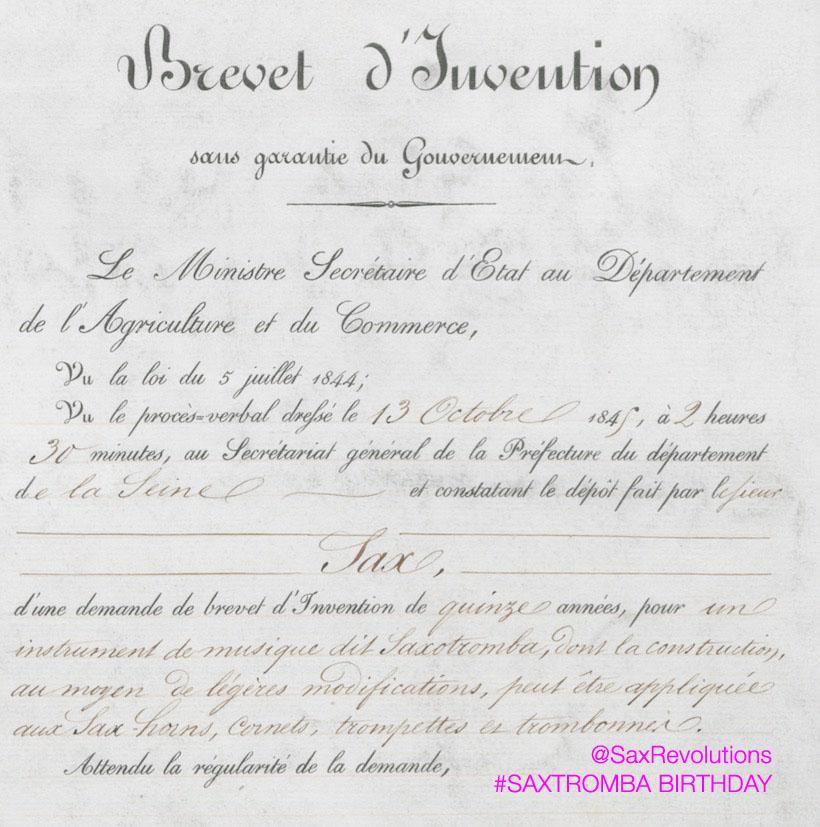 Brevet d'Invention
sans garantie du Gouvernement.
Le Ministre Secrétaire d'Etat au Département
de l'Agriculture et du Commerce,
Vu la loi du 5 juillet 1844;
Vu le procès=verbal dressé le 13 Octobre 1845, à 2 heures
30 minutes, au Secrétariat général de la Préfecture du département
de la Seine et constatant le dépôt fait par le sieur
Sax,
d'une demande de brevet d'Invention de quinze années, pour un
instrument de musique dit Saxotromba, dont la construction,
au moyen de légères modifications, peut être appliquée
aux Sax-horns, cornets, trompettes et trombonnes.
Attendu la régularité de la demande,
@SaxRevolutions
#SAXTROMBA BIRTHDAY